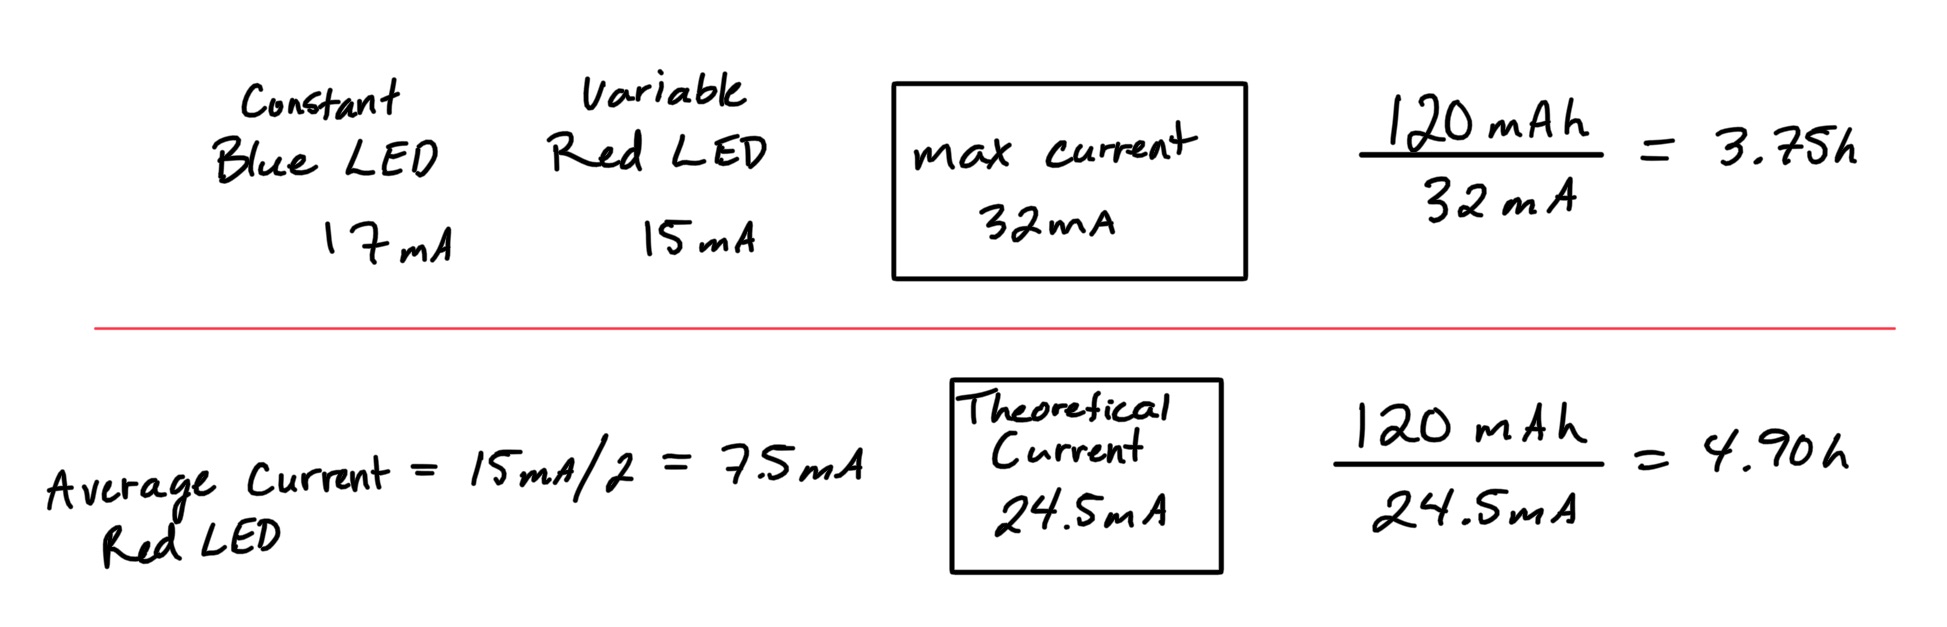 Constant
Blue LED
17mA
Variable
Red LED
15mA
max current
32mA
120 mAh
32 mA
= 3.75h
Average Current = 15mA/2 = 7.5mA
Red LED
Theoretical
Current
24.5mA
120 mAh
24.5mA
= 4.90h